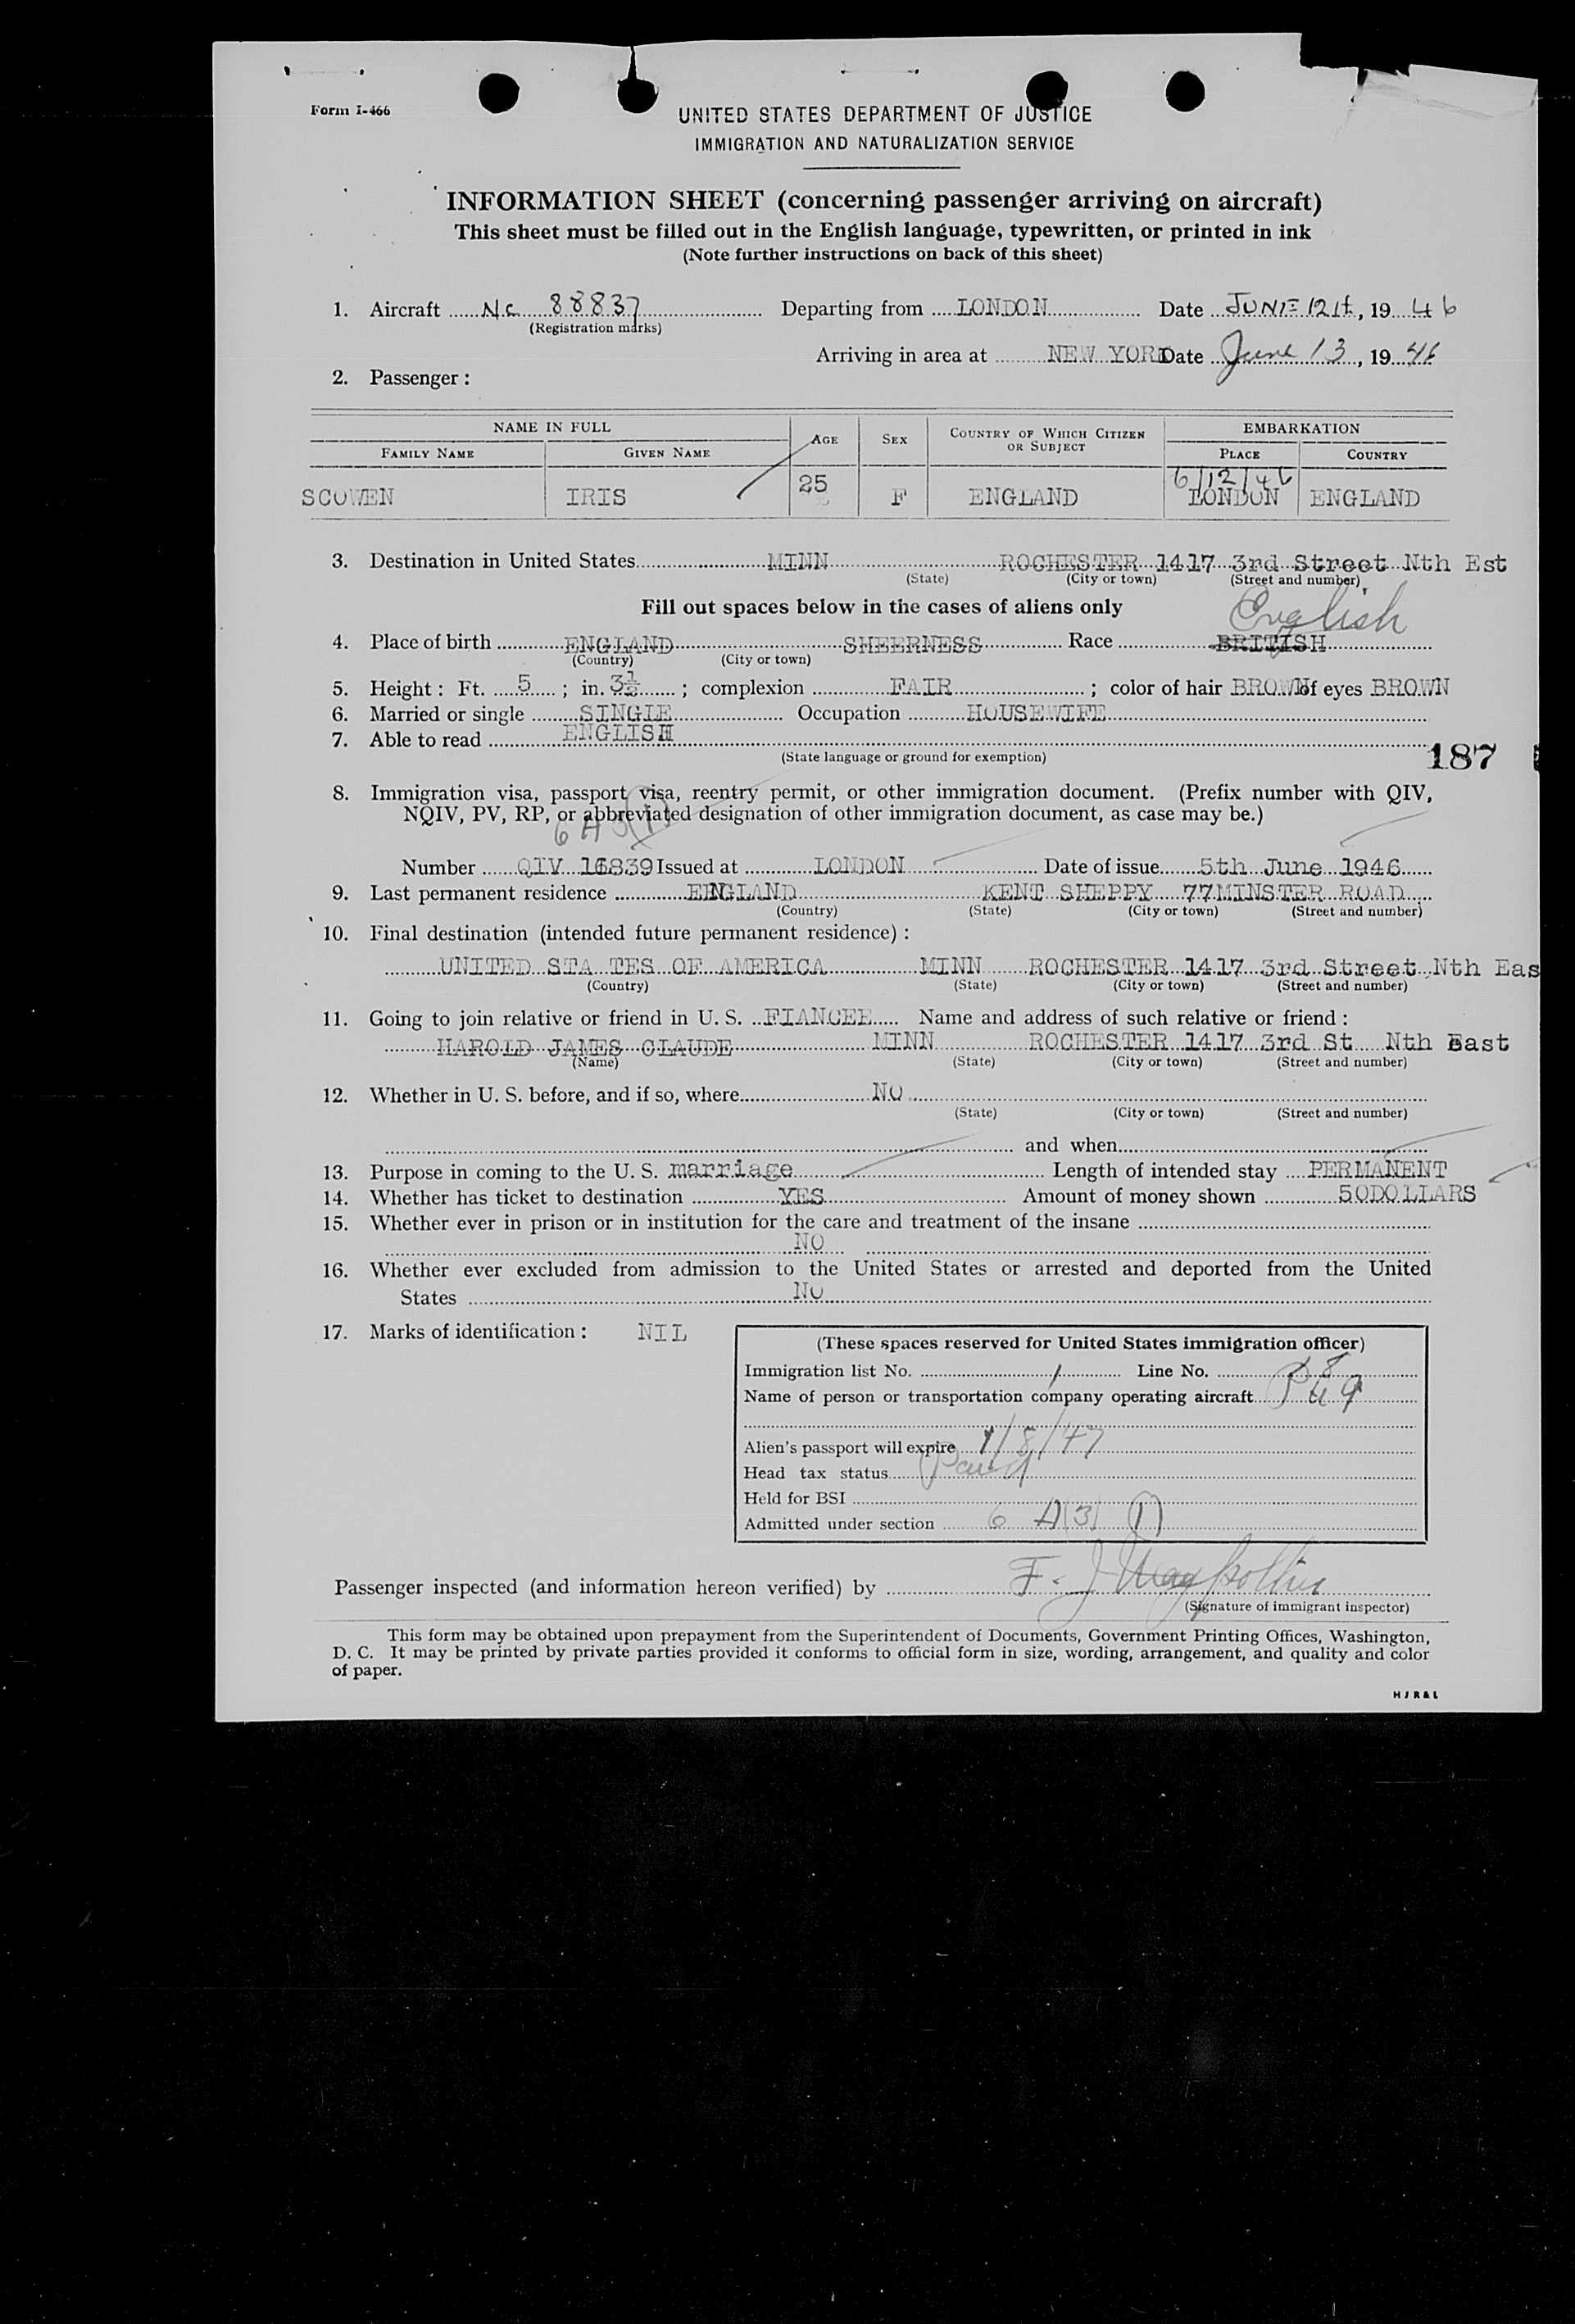 Form I-466
UNITED STATES DEPARTMENT OF JUSTICE
IMMIGRATION AND NATURALIZATION SERVICE
INFORMATION SHEET (concerning passenger arriving on aircraft)
This sheet must be filled out in the English language, typewritten, or printed in ink
(Note further instructions on back of this sheet)
1. Aircraft Nc 88837 Departing from LONDON Date JUNE 12th, 19 46
(Registration marks)
Arriving in area at NEW YORK Date June 13, 19 46
2. Passenger:
NAME IN FULL AGE SEX COUNTRY OF WHICH CITIZEN OR SUBJECT EMBARKATION
FAMILY NAME GIVEN NAME PLACE COUNTRY
6/12/46
SCOWEN IRIS 25 F ENGLAND LONDON ENGLAND
3. Destination in United States MINN ROCHESTER 1417 3rd Street Nth Est
(State) (City or town) (Street and number)
Fill out spaces below in the cases of aliens only
English
4. Place of birth ENGLAND SHEERNESS Race BRITISH
(Country) (City or town)
5. Height: Ft. 5; in. 3½; complexion FAIR; color of hair BROWN of eyes BROWN
6. Married or single SINGLE Occupation HOUSEWIFE
7. Able to read ENGLISH
(State language or ground for exemption)
187
8. Immigration visa, passport visa, reentry permit, or other immigration document. (Prefix number with QIV,
NQIV, PV, RP, or abbreviated designation of other immigration document, as case may be.)
6 A 3 (1)
Number QIV 16839 Issued at LONDON Date of issue 5th June 1946
9. Last permanent residence ENGLAND KENT SHEPPY 77MINSTER ROAD
(Country) (State) (City or town) (Street and number)
10. Final destination (intended future permanent residence):
UNITED STA TES OF AMERICA MINN ROCHESTER 1417 3rd Street Nth Eas
(Country) (State) (City or town) (Street and number)
11. Going to join relative or friend in U. S. FIANCEE Name and address of such relative or friend:
HAROLD JAMES CLAUDE MINN ROCHESTER 1417 3rd St Nth East
(Name) (State) (City or town) (Street and number)
12. Whether in U. S. before, and if so, where NO
(State) (City or town) (Street and number)
and when
13. Purpose in coming to the U. S. marriage Length of intended stay PERMANENT
14. Whether has ticket to destination YES Amount of money shown 50DOLLARS
15. Whether ever in prison or in institution for the care and treatment of the insane
NO
16. Whether ever excluded from admission to the United States or arrested and deported from the United
States NO
17. Marks of identification: NIL
(These spaces reserved for United States immigration officer)
Immigration list No. 1 Line No. 8
Name of person or transportation company operating aircraft
Alien's passport will expire 1/8/47
Head tax status Paid
Held for BSI
Admitted under section 6 A (3) (1)
Passenger inspected (and information hereon verified) by F. J.
(Signature of immigrant inspector)
This form may be obtained upon prepayment from the Superintendent of Documents, Government Printing Offices, Washington,
D. C. It may be printed by private parties provided it conforms to official form in size, wording, arrangement, and quality and color
of paper.
H J R & L